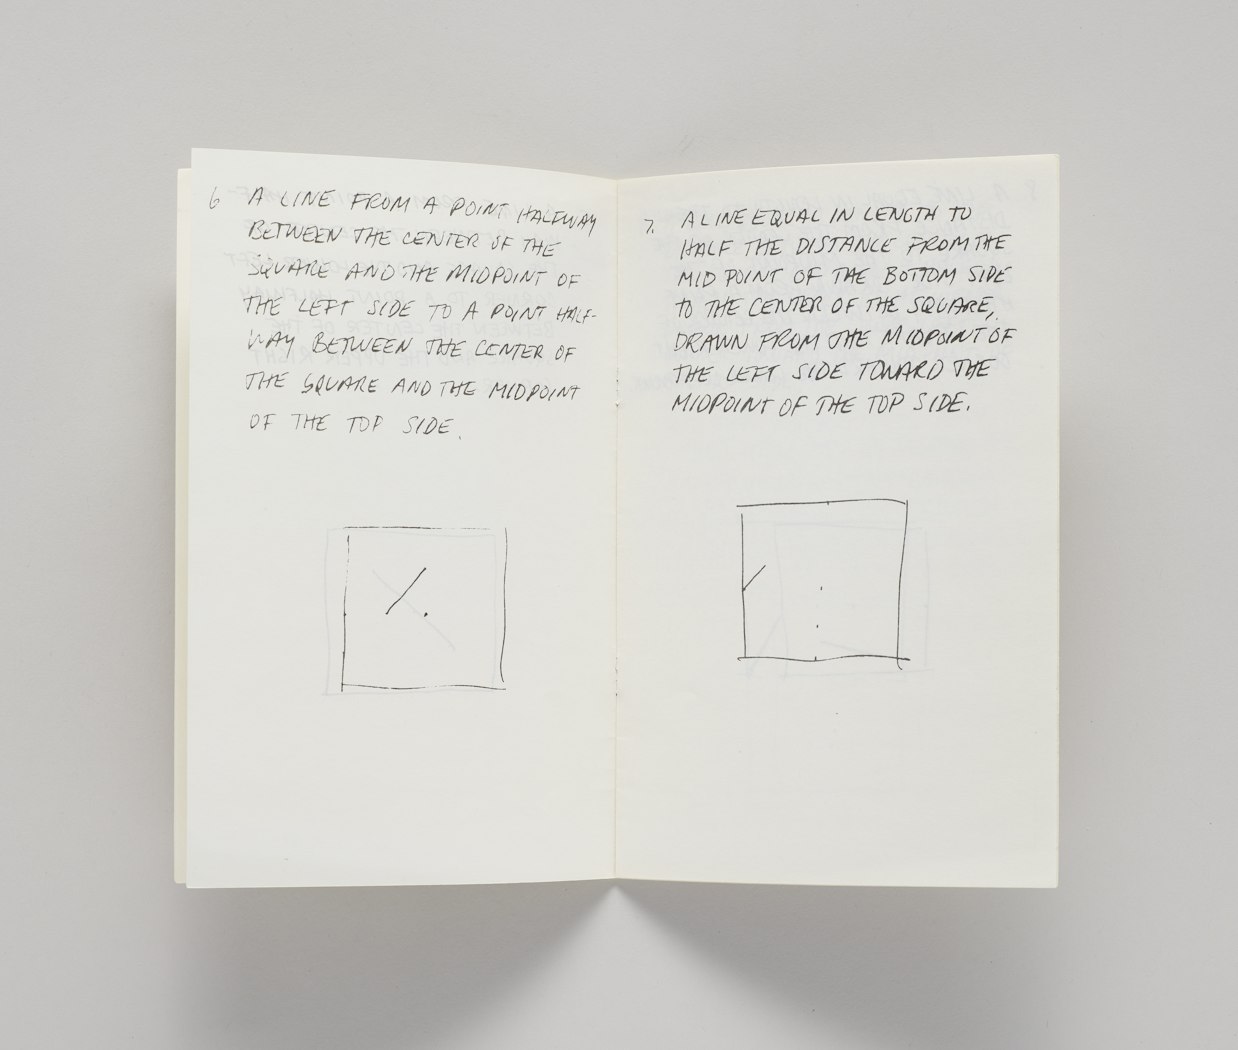 6 A LINE FROM A POINT HALFWAY
BETWEEN THE CENTER OF THE
SQUARE AND THE MIDPOINT OF
THE LEFT SIDE TO A POINT HALF-
WAY BETWEEN THE CENTER OF
THE SQUARE AND THE MIDPOINT
OF THE TOP SIDE.
7. A LINE EQUAL IN LENGTH TO
HALF THE DISTANCE FROM THE
MID POINT OF THE BOTTOM SIDE
TO THE CENTER OF THE SQUARE,
DRAWN FROM THE MIDPOINT OF
THE LEFT SIDE TOWARD THE
MIDPOINT OF THE TOP SIDE.